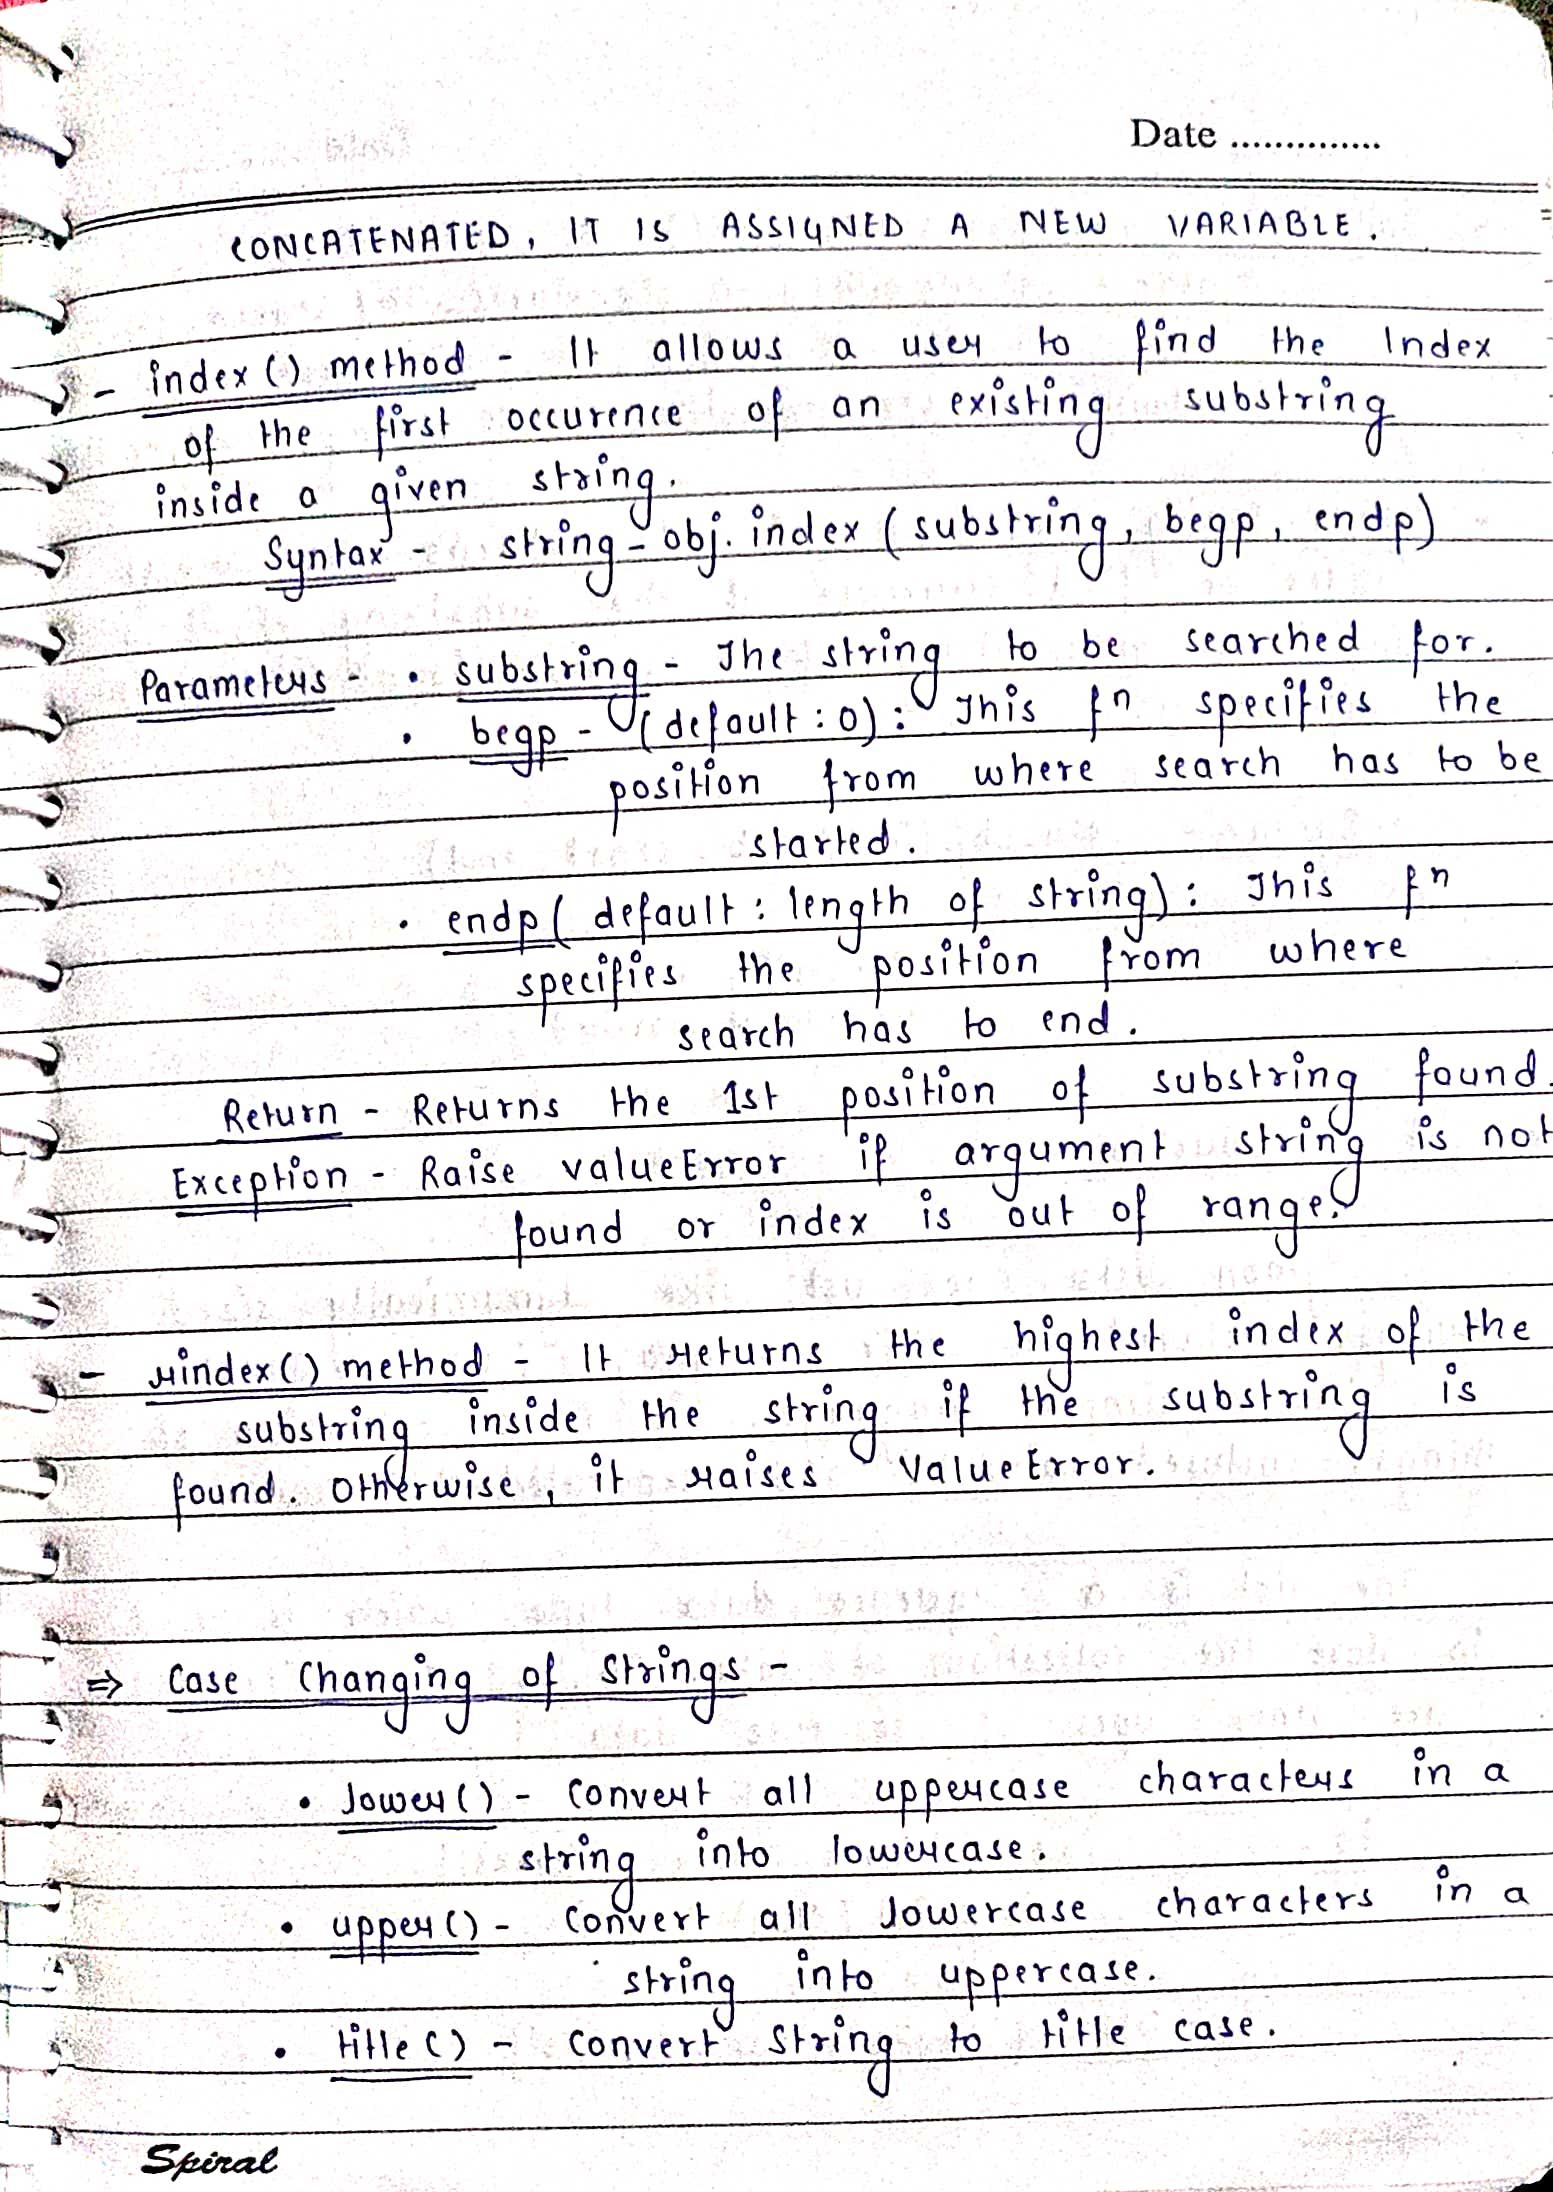 Date ...............
CONCATENATED, IT IS ASSIGNED A NEW VARIABLE.
- index() method - It allows a user to find the Index
of the first occurence of an existing substring
inside a given string.
Syntax - string-obj.index (substring, begp, endp)
Parameters - • substring - The string to be searched for.
• begp - (default : 0) : This fn specifies the
position from where search has to be
started.
• endp( default : length of string) : This fn
specifies the position from where
search has to end.
Return - Returns the 1st position of substring found.
Exception - Raise valueError if argument string is not
found or index is out of range.
- rindex() method - It returns the highest index of the
substring inside the string if the substring is
found. Otherwise, it raises ValueError.
⇒ Case Changing of Strings -
• lower() - Convert all uppercase characters in a
string into lowercase.
• upper() - Convert all lowercase characters in a
string into uppercase.
• title() - Convert String to title case.
Spiral